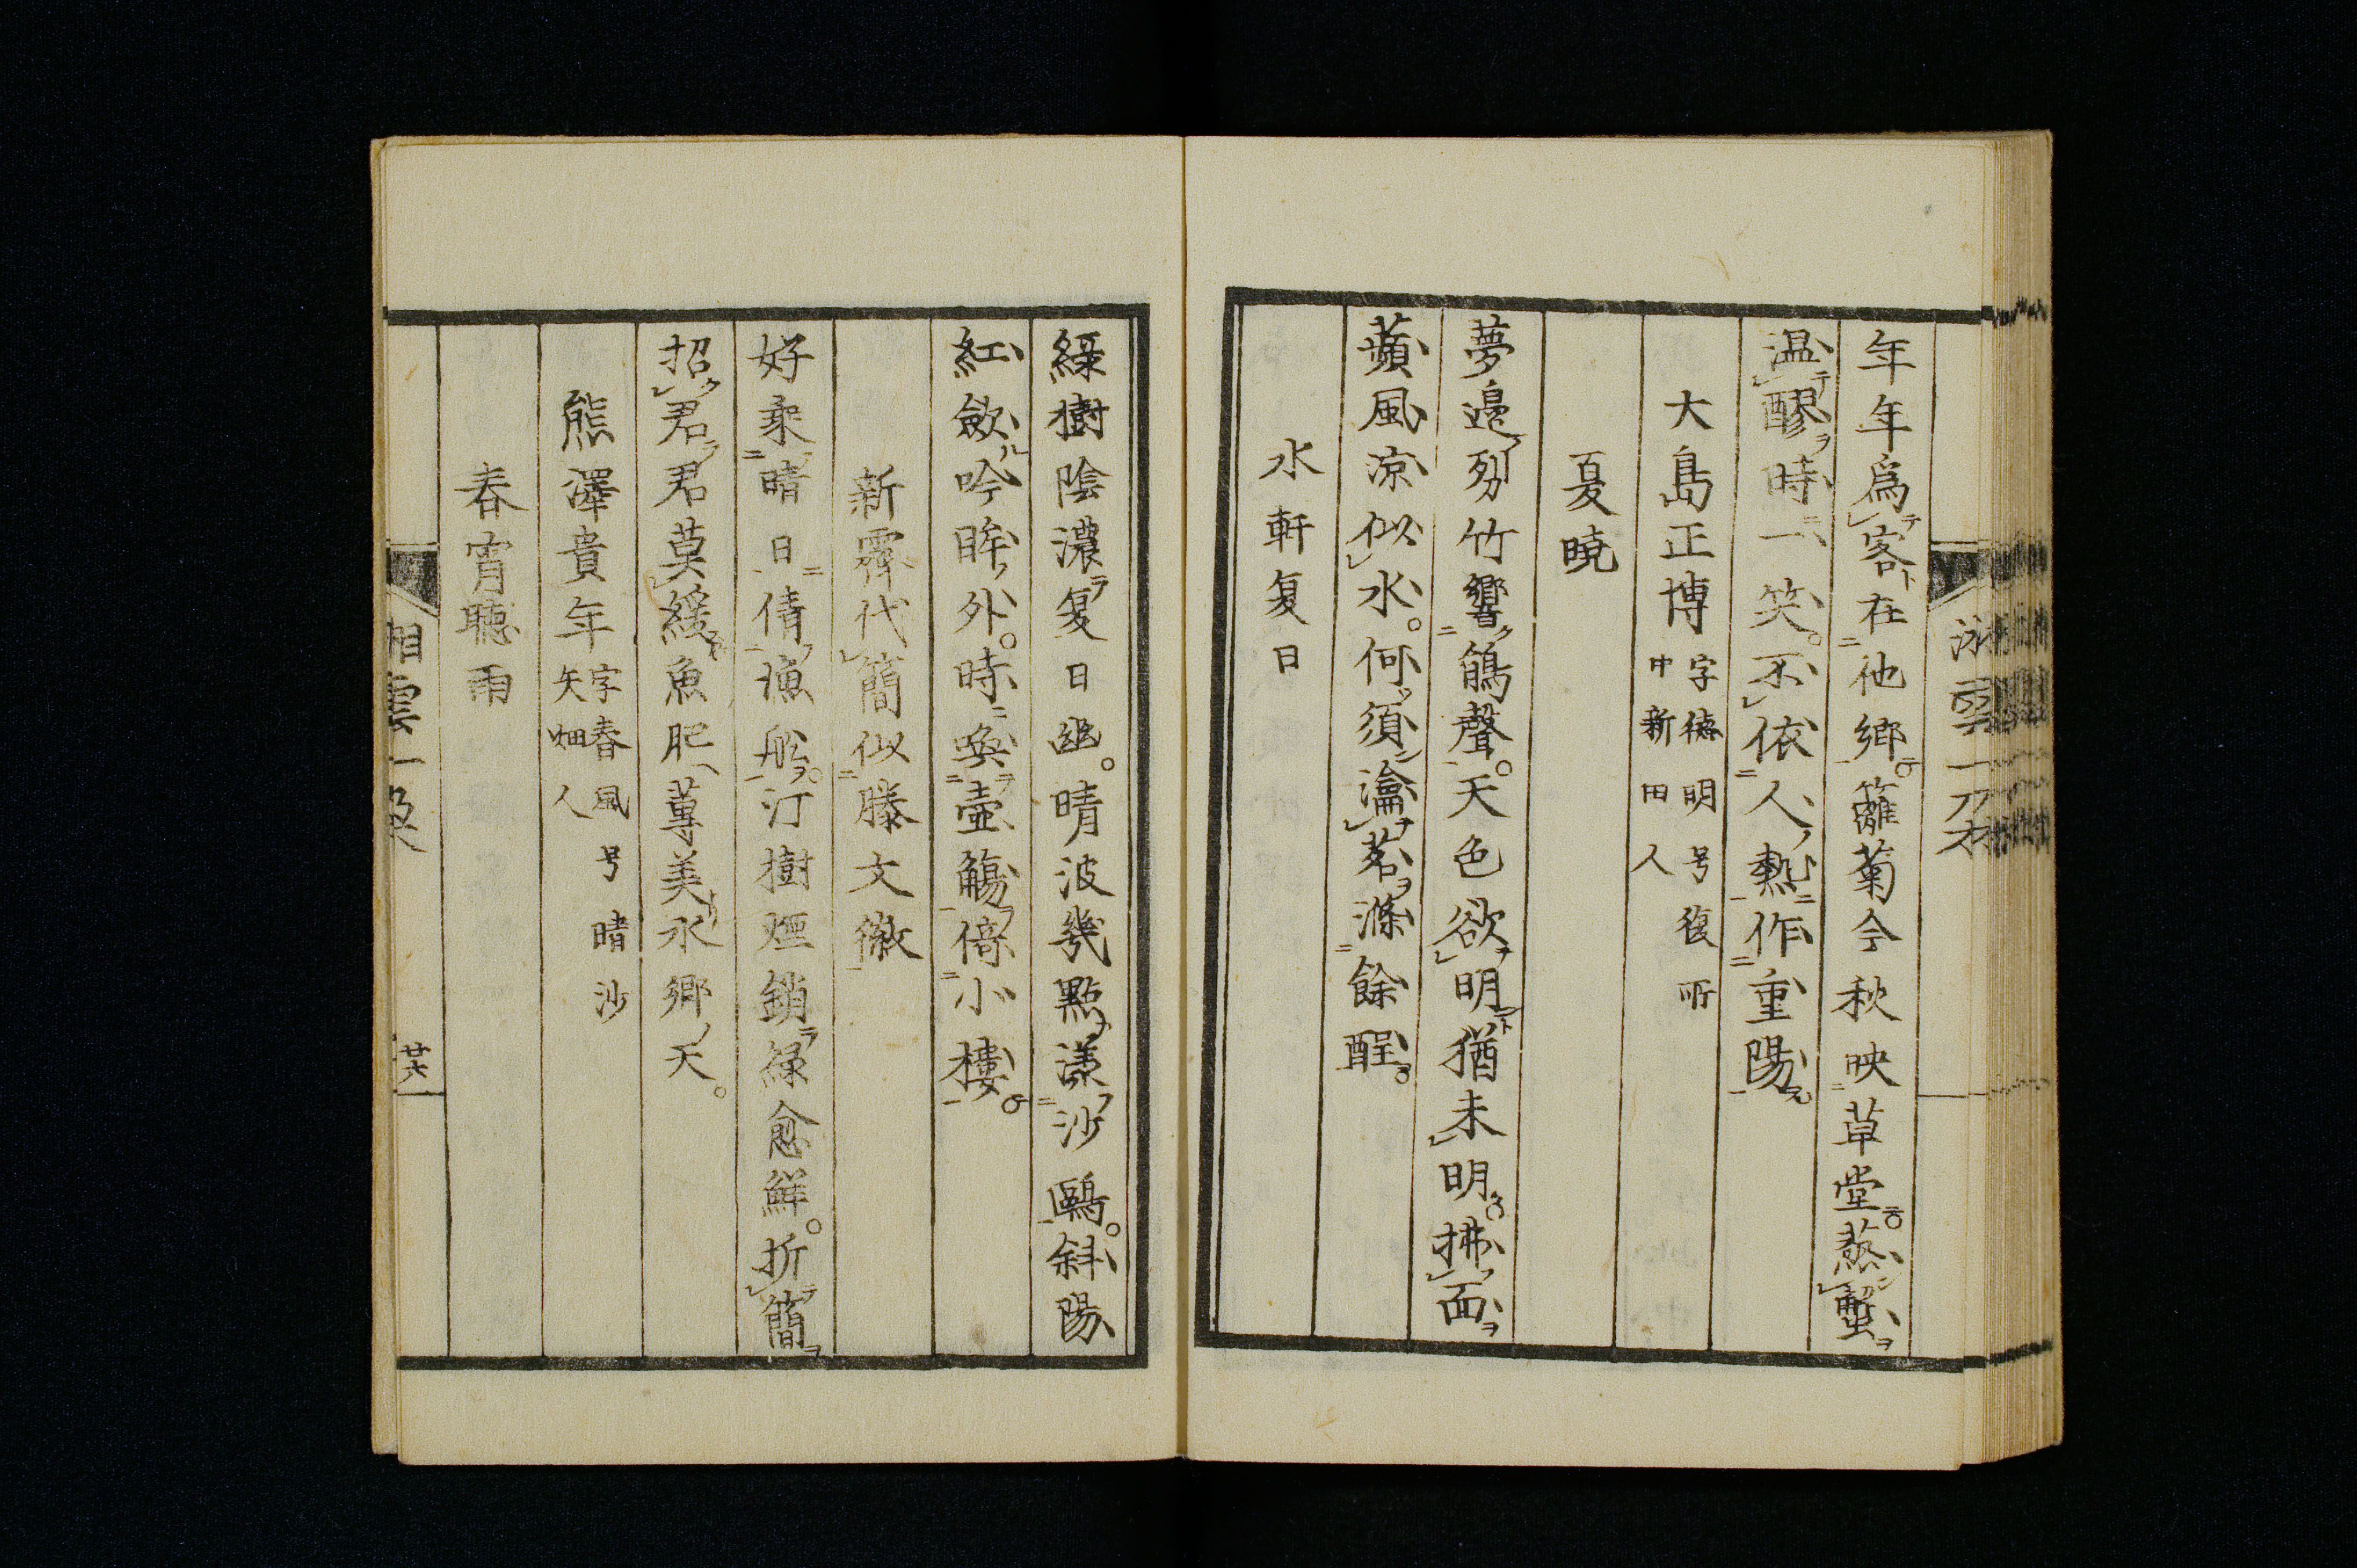 年年爲客在他郷籬菊今秋映草堂蒸蟹
温醪時一笑不依人熱作重陽
大島正博 字德明号復所
中新田人
夏曉
夢邊剪竹響鵑聲天色欲明猶未明拂面
蘋風凉似水何須瀹茗滌餘酲
水軒夏日
綠樹陰濃夏日幽晴波幾點漾沙鷗斜陽
紅斂吟眸外時喚壺觴倚小樓
新霽代簡似滕文徽
好乘晴日倩漁船汀樹煙鎖綠愈鮮折簡
招君君莫緩魚肥蓴美水郷天
熊澤貴年 字春風号晴沙
矢畑人
春宵聽雨
廿六